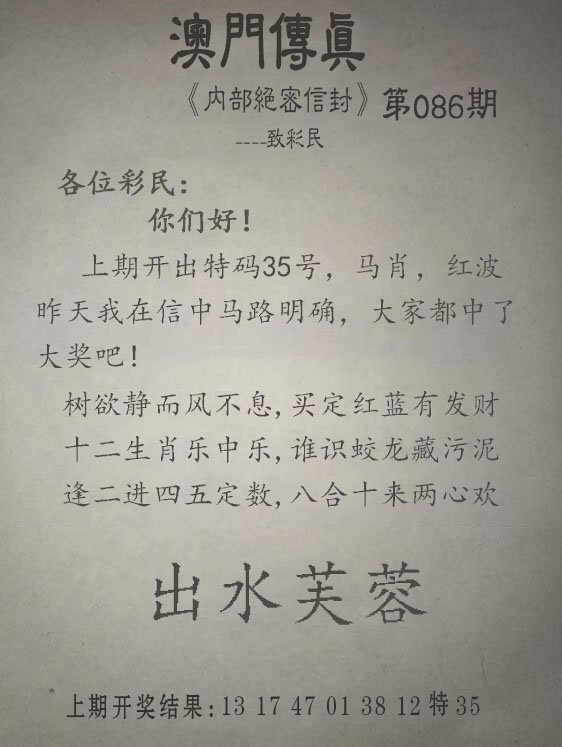 澳門傳眞
《内部絕密信封》第086期
----致彩民
各位彩民：
你们好！
上期开出特码35号，马肖，红波
昨天我在信中马路明确，大家都中了
大奖吧！
树欲静而风不息,买定红蓝有发财
十二生肖乐中乐,谁识蛟龙藏污泥
逢二进四五定数,八合十来两心欢
出水芙蓉
上期开奖结果：13 17 47 01 38 12特35